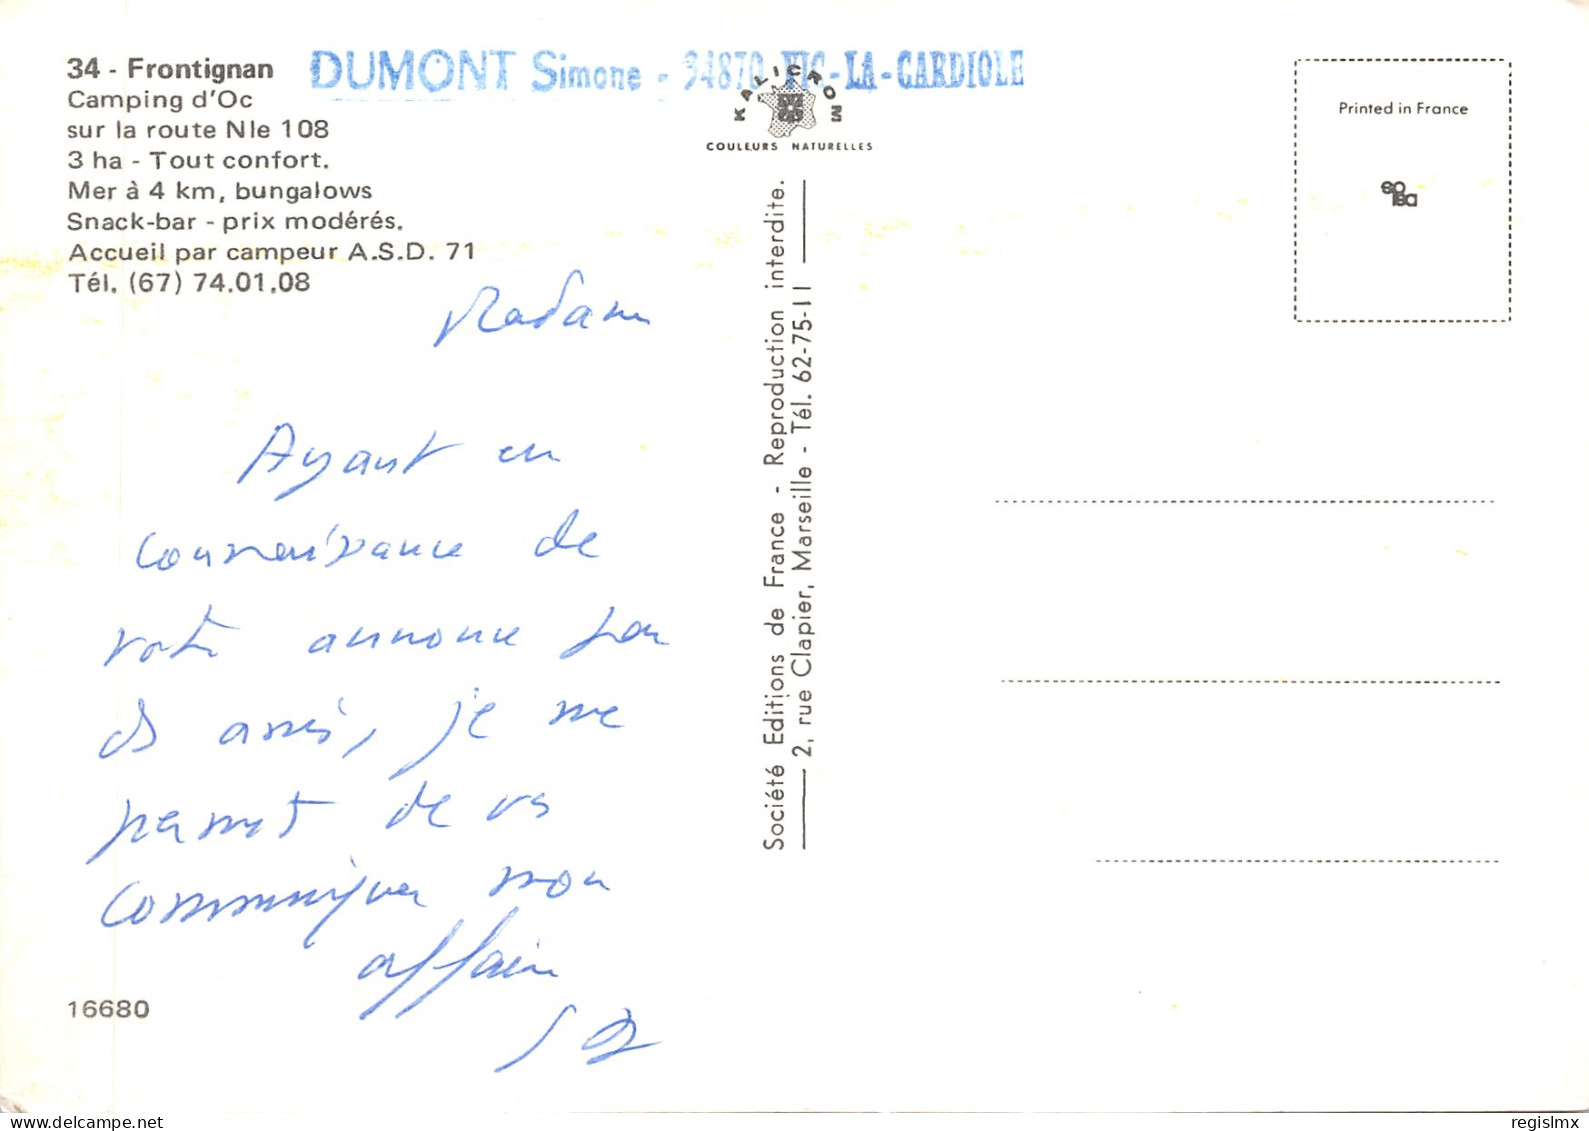 34 - Frontignan
Camping d'Oc
sur la route Nle 108
3 ha - Tout confort.
Mer à 4 km, bungalows
Snack-bar - prix modérés.
Accueil par campeur A.S.D. 71
Tél. (67) 74.01.08
DUMONT Simone - 34870 VIC-LA-GARDIOLE
KALICROM
COULEURS NATURELLES
Printed in France
Madame
Ayant eu
connaissance de
votre annonce par
des amis, je me
permet de vs
communiquer mon
affaire
SD
16680
Société Editions de France - Reproduction interdite.
2, rue Clapier, Marseille - Tél. 62-75-11
regislmx